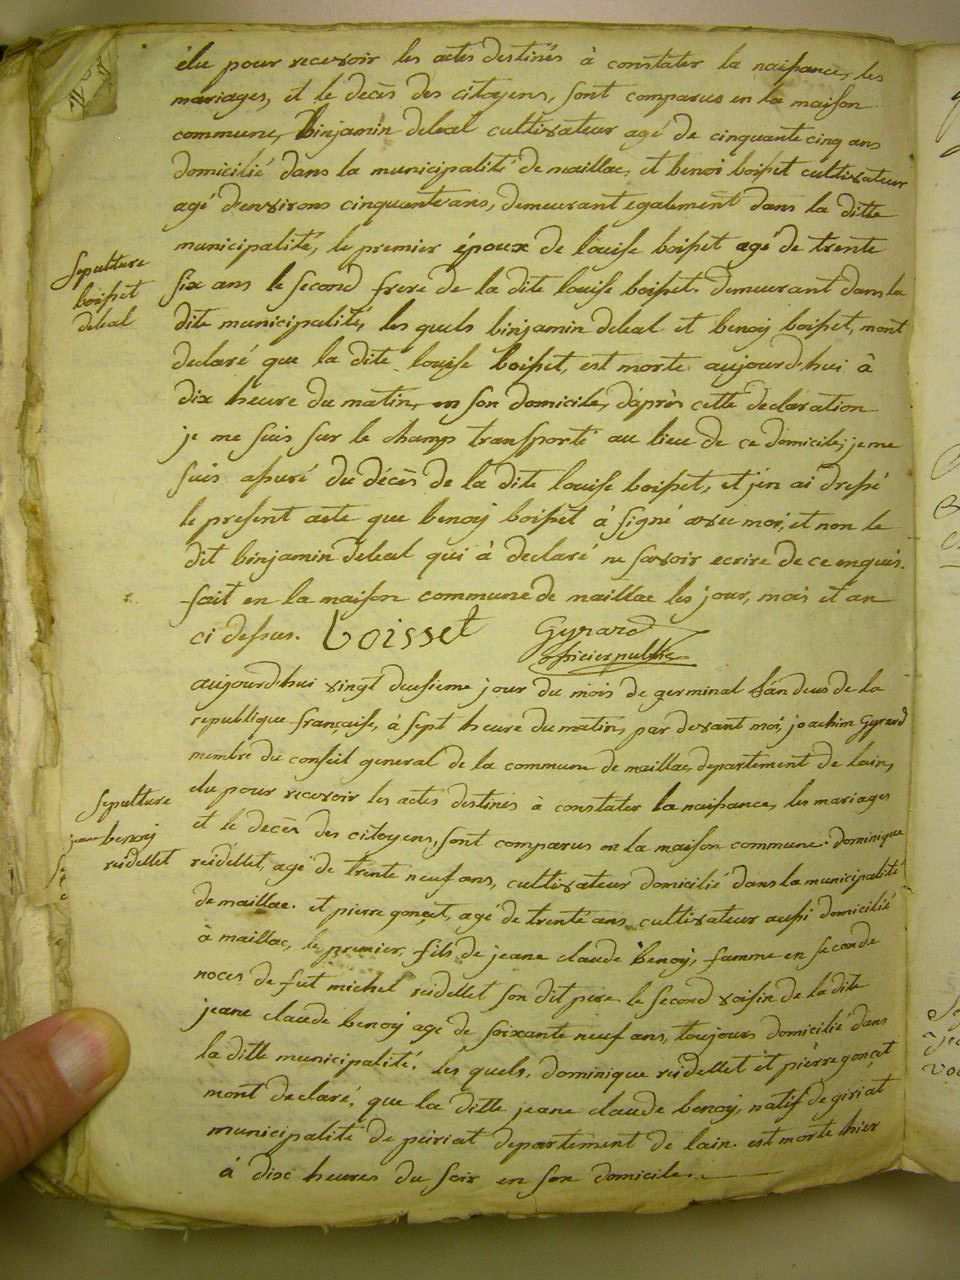 élu pour recevoir les actes destinés à constater la naissance, les
mariages, et le decès des citoyens, sont comparus en la maison
commune, binjamin deleal cultivateur agé de cinquante cinq ans
domicilié dans la municipalité de maillac, et benoi boisset cultivateur
agé denvirons cinquante ans, demeurant egalement dans la ditte
municipalité, le premier époux de louise boisset agé de trente
six ans le second frere de la dite louise boisset. demeurant dans la
dite municipalité, les quels binjamin deleal et benoy boisset, mont
declaré que la dite louise boisset, est morte aujourd'hui à
dix heure du matin, en son domicile, d'après cette declaration
je me suis sur le champ transporté au lieu de ce domicile, je me
suis assuré du décès de la dite louise boisset, et j'en ai dressé
le present acte que benoy boisset à signé avec moi, et non le
dit binjamin deleal qui à declaré ne savoir ecrire de ce enquis.
fait en la maison commune de maillac les jour, mois et an
ci dessus. boisset Gyrard
officier public
sepulture
boisset
deleal
aujourd'hui vingt deusieme jour du mois de germinal l'an deus de la
republique française, à sept heure du matin, par devant moi, joachim Gyrard
membre du conseil general de la commune de maillac, departement de lain,
elu pour recevoir les actes destinés à constater la naissance, les mariages
et le decès des citoyens, sont comparus en la maison commune. dominique
reidellet, agé de trente neuf ans, cultivateur domicilié dans la municipalité
de maillac. et pierre gonçet, agé de trente ans, cultivateur aussi domicilié
à maillac, le premier, fils de jeane claude benoy, famme en seconde
noces de fut michel reidellet son dit pere, le second voisin de la dite
jeane claude benoy agé de soixante neuf ans, toujours domicilié dans
la ditte municipalité. les quels, dominique reidellet et pierre gonçet
mont declaré, que la ditte jeane claude benoy, natif de giriat
municipalité de peiriat departement de lain. est morte hier
à dix heures du soir en son domicile.
sepulture
jeane benoy
reidellet